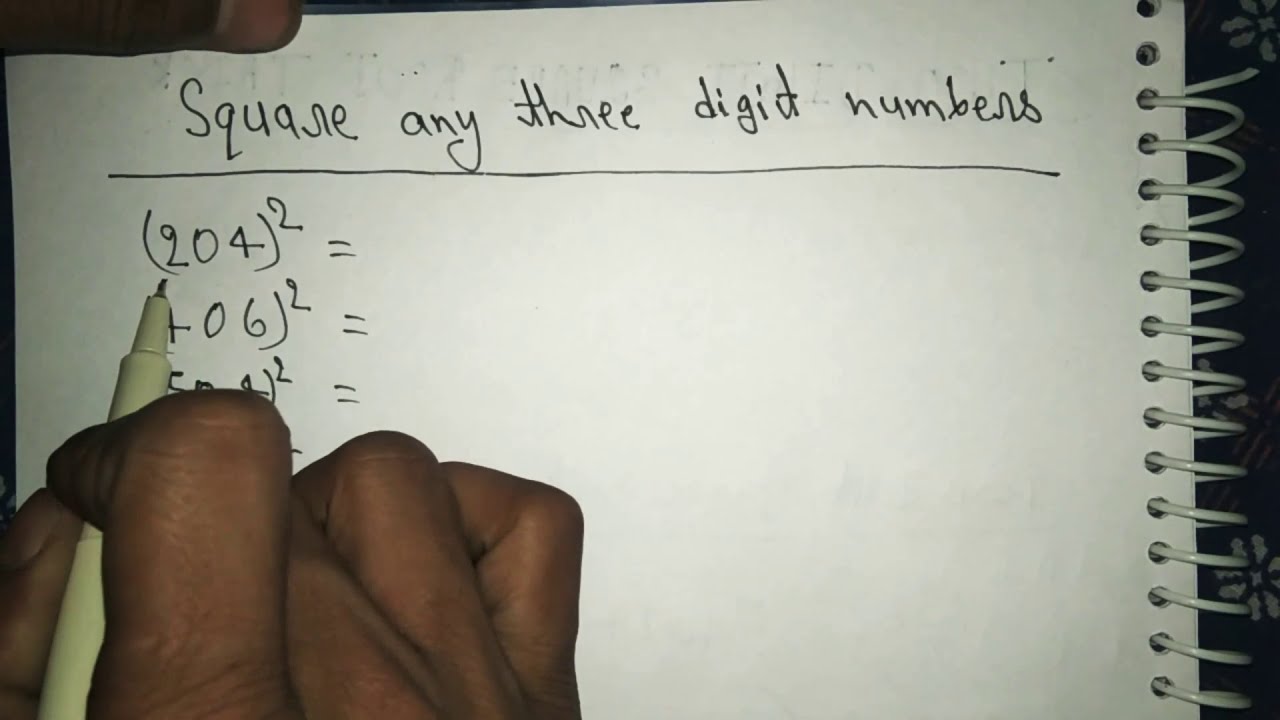 Square any three digit numbers
(204)² =
06)² =
)² =